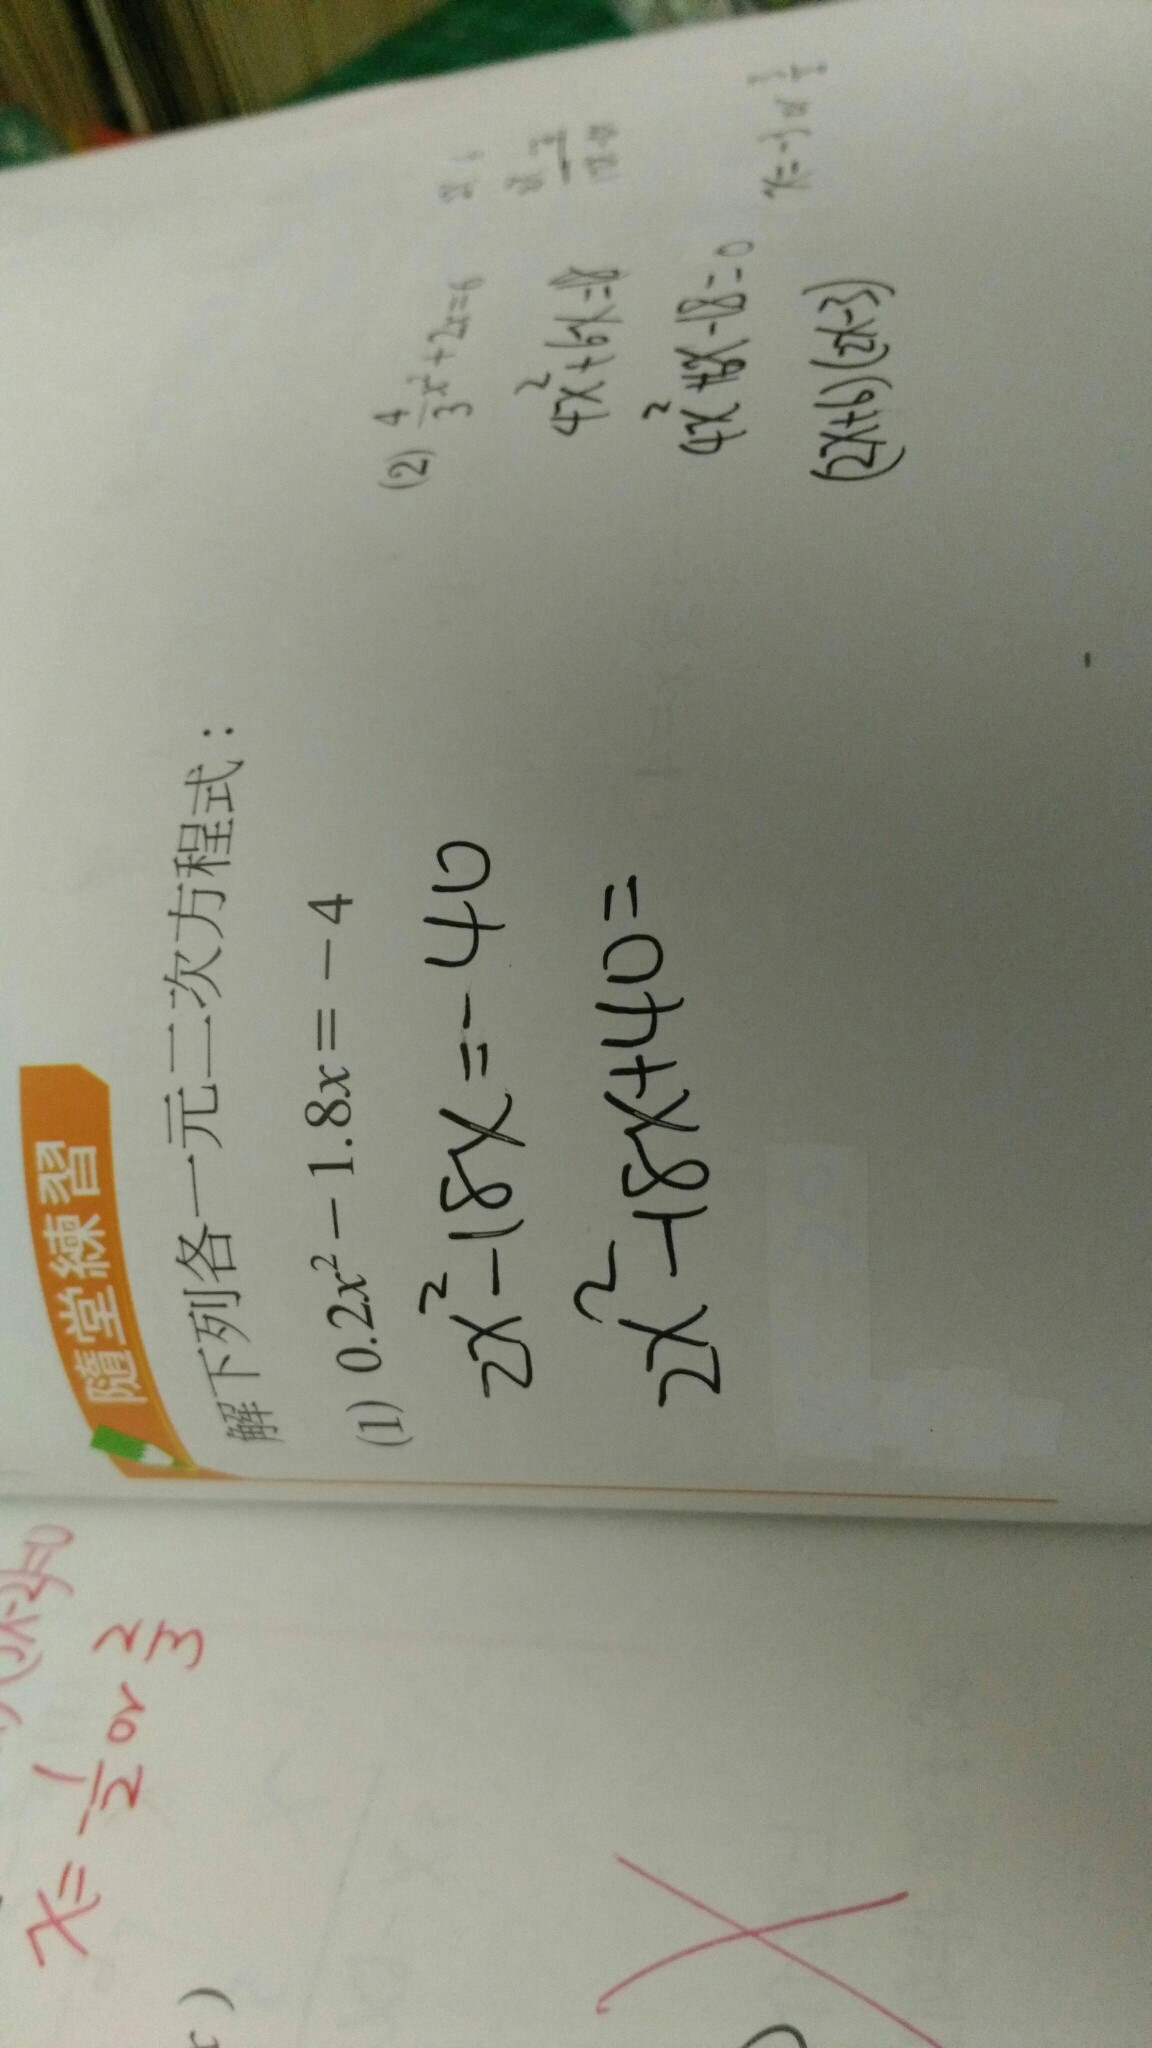 隨堂練習
解下列各一元二次方程式：
(1) 0.2x² − 1.8x = − 4
2x² − 18x = − 40
2x² − 18x + 40 =
(2) 4/3 x² + 2x = 6
4x² + 6x = 18
4x² + 6x − 18 = 0
(2x+6)(2x−3)
x = −3 or 3/2
x = − 1/2 or 2/3